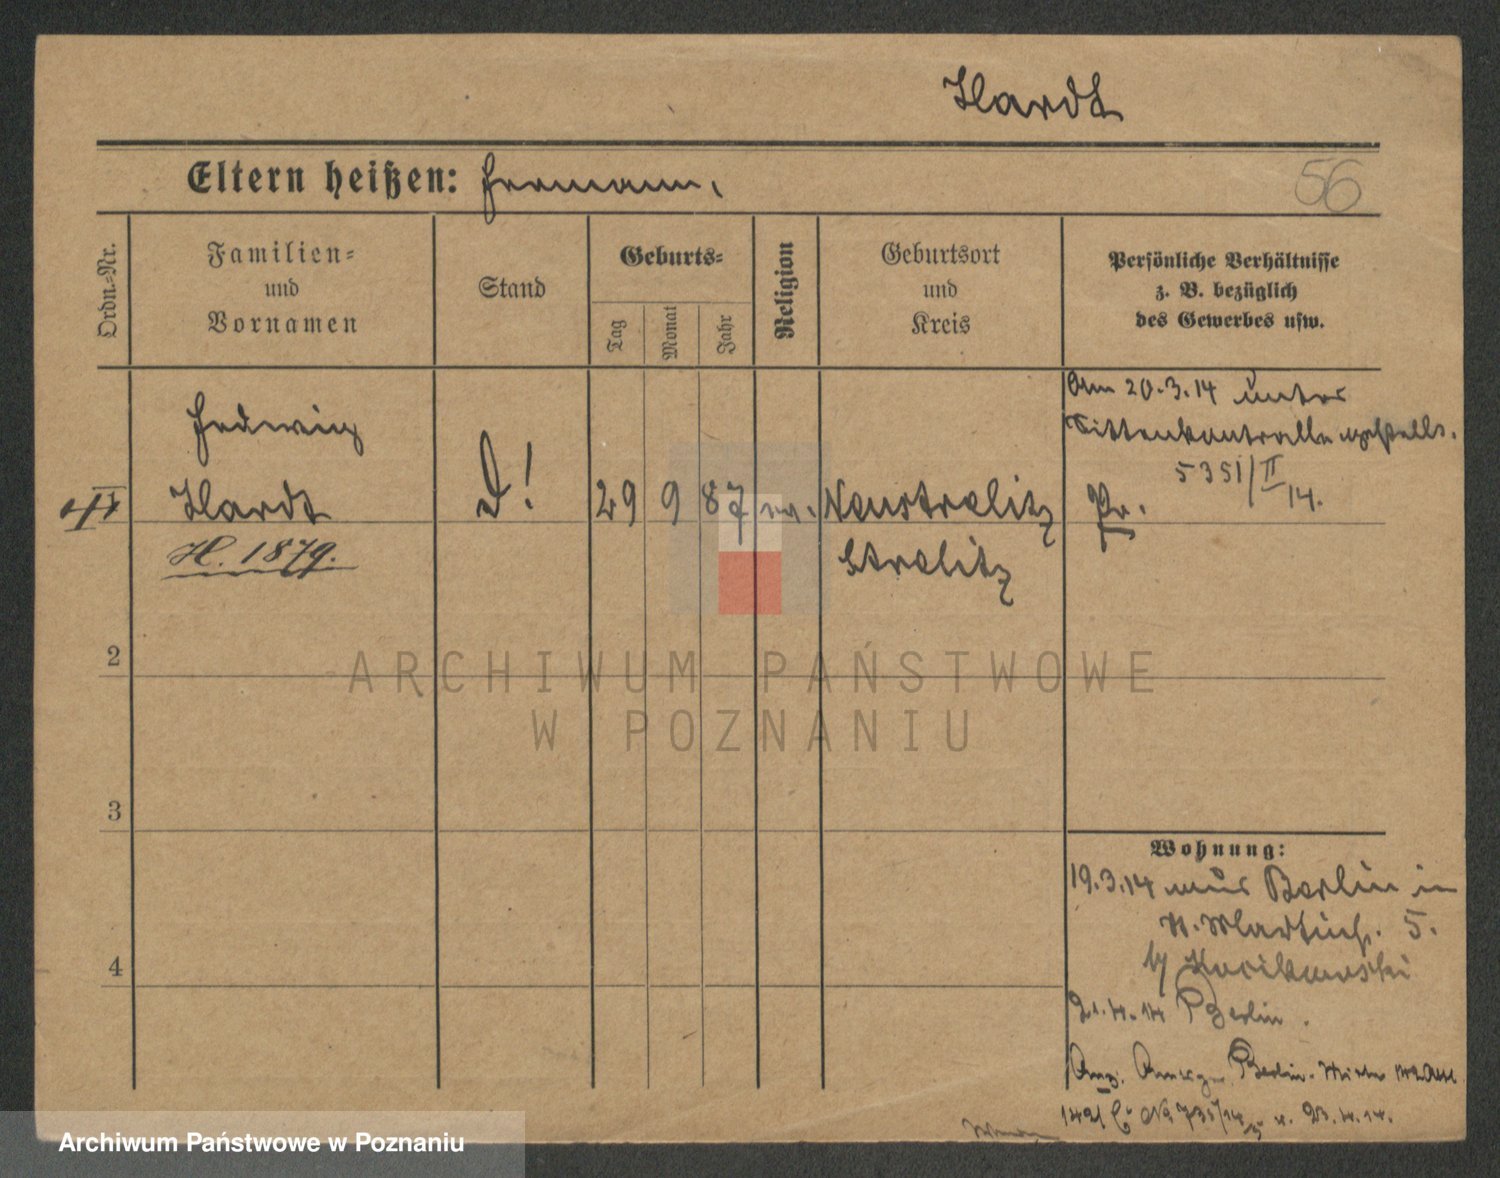 Hardt
Eltern heißen: Hermann.
56
Ordn.-Nr.
Familien-
und
Vornamen
Stand
Geburts-
Tag
Monat
Jahr
Religion
Geburtsort
und
Kreis
Persönliche Verhältnisse
z. B. bezüglich
des Gewerbes usw.
Hedwig
Hardt
H. 1879.
D!
29 9 87 ev.
Neustrelitz
Strelitz
Am 20.3.14 unter
Sittenkontrolle gestellt.
5351/II
14.
Pr.
2
3
4
Wohnung:
19.3.14 aus Berlin in
5.
21.4.14 Berlin.
Berlin
23.4.14.
ARCHIWUM PAŃSTWOWE
W POZNANIU
Archiwum Państwowe w Poznaniu